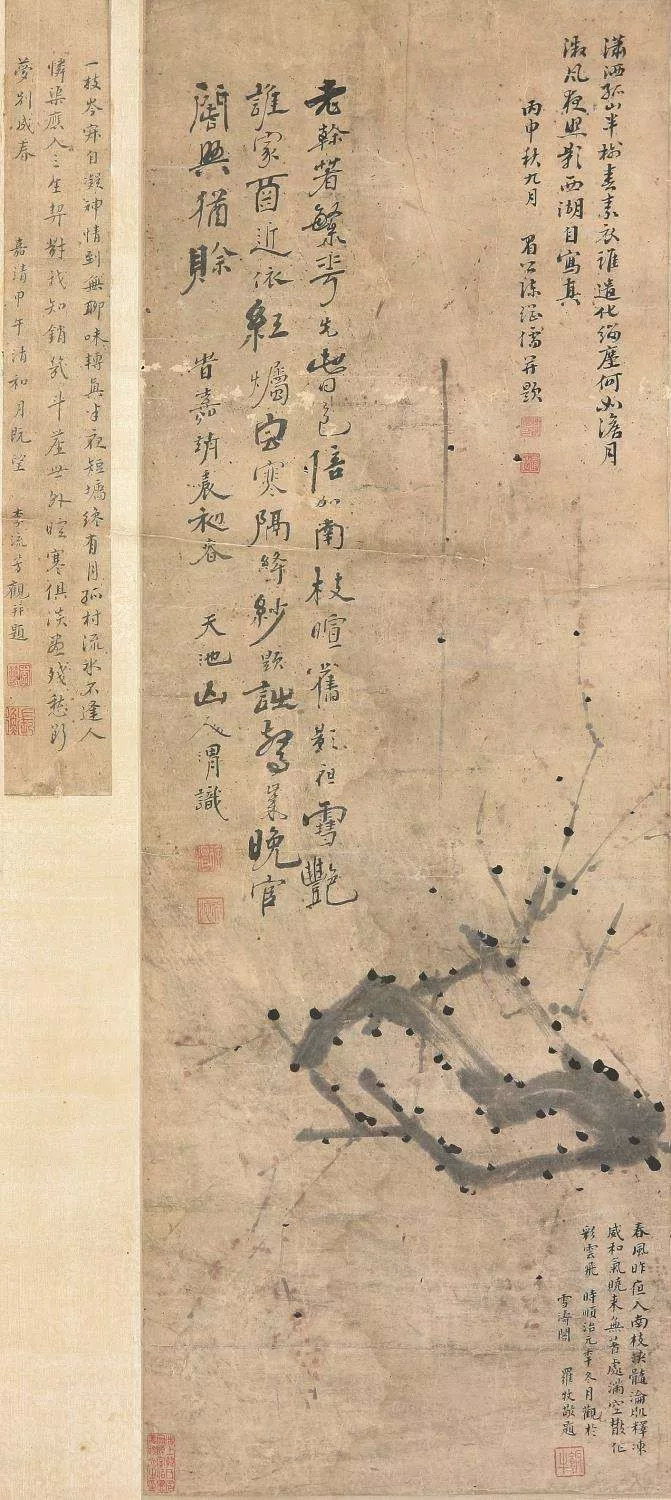 瀟洒孤山半樹春素衣誰遣化緇塵何如澹月
微風夜照影西湖自寫真
丙申秋九月 眉公陳繼儒并題
老幹著繁花先皆色倍加南枝暄舊影祖雪艷
誰家酉近依紅燭寒隔絳紗題詩驚歲晚官
閣興猶賒 昔嘉靖袁初春 天池山人渭識
春風昨夜入南枝染髓淪肌釋凍
威和氣曉来無著處滿空散作
彩雲飛 時順治元年冬月觀於
雪濤閣 羅牧敬題
一枝岑寂自凝神情到無聊味轉真半夜短墻終有月孤村流水不逢人
憐渠應入三生契對我知銷幾斗塵世外暄寒俱淡盡殘愁影
夢別成春 嘉清甲午清和月既望 李流芳觀并題